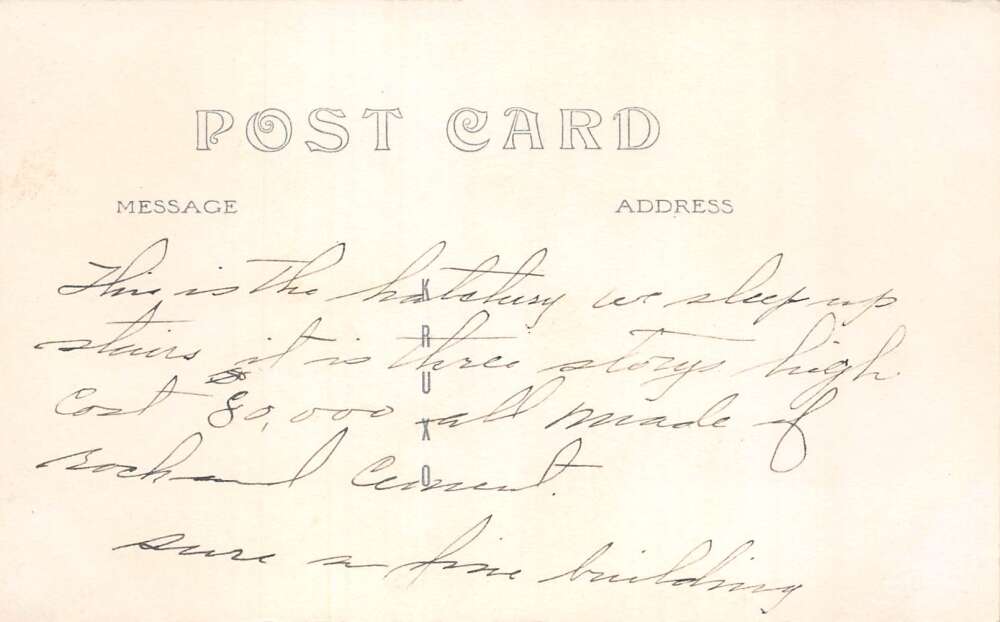 POST CARD
MESSAGE
ADDRESS
This is the hatchery we sleep up
stairs it is three storys high
cost $80,000 all made of
Rock and Cement.
sure a fine building
KRUXO